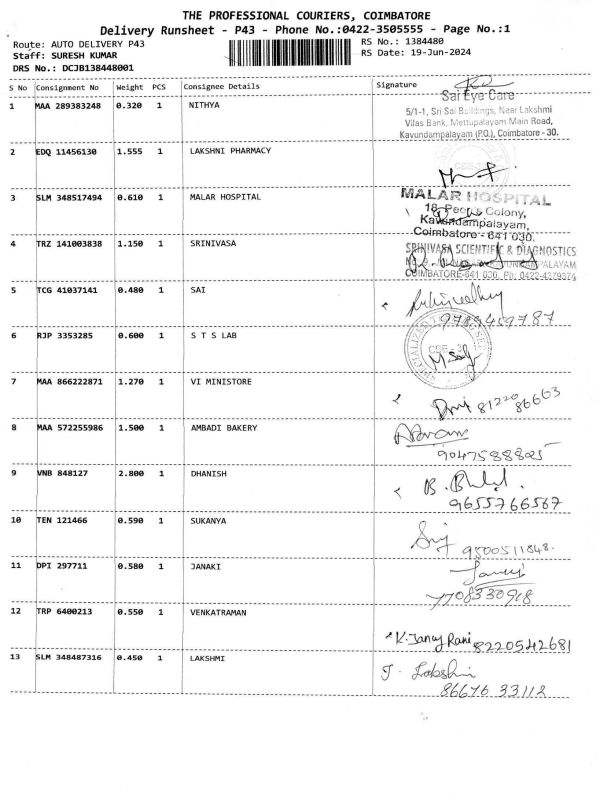 THE PROFESSIONAL COURIERS, COIMBATORE
Delivery Runsheet - P43 - Phone No.:0422-3505555 - Page No.:1
Route: AUTO DELIVERY P43 RS No.: 1384480
Staff: SURESH KUMAR RS Date: 19-Jun-2024
DRS No.: DCJB138448001
S No Consignment No Weight PCS Consignee Details Signature
Sai Eye Care
1 MAA 289383248 0.320 1 NITHYA
5/1-1, Sri Sai Buildings, Near Lakshmi
Vilas Bank, Mettupalayam Main Road,
Kavundampalayam (P.O.), Coimbatore - 30.
2 EDQ 11456130 1.555 1 LAKSHNI PHARMACY
3 SLM 348517494 0.610 1 MALAR HOSPITAL
MALAR HOSPITAL
18, Colony,
Kavundampalayam,
Coimbatore - 641 030.
4 TRZ 141003838 1.150 1 SRINIVASA
SRINIVASA SCIENTIFIC & DIAGNOSTICS
COIMBATORE-641 030. Ph: 0422-4379374
5 TCG 41037141 0.480 1 SAI
9789459787
6 RJP 3353285 0.600 1 S T S LAB
7 MAA 866222871 1.270 1 VI MINISTORE
81220 86663
8 MAA 572255986 1.500 1 AMBADI BAKERY
9047588825
9 VNB 848127 2.800 1 DHANISH
9655766567
10 TEN 121466 0.590 1 SUKANYA
9500511848.
11 DPI 297711 0.580 1 JANAKI
7708330918
12 TRP 6400213 0.550 1 VENKATRAMAN
K. Jancy Rani 8220542681
13 SLM 348487316 0.450 1 LAKSHMI
J. Lakshmi
86676 33112